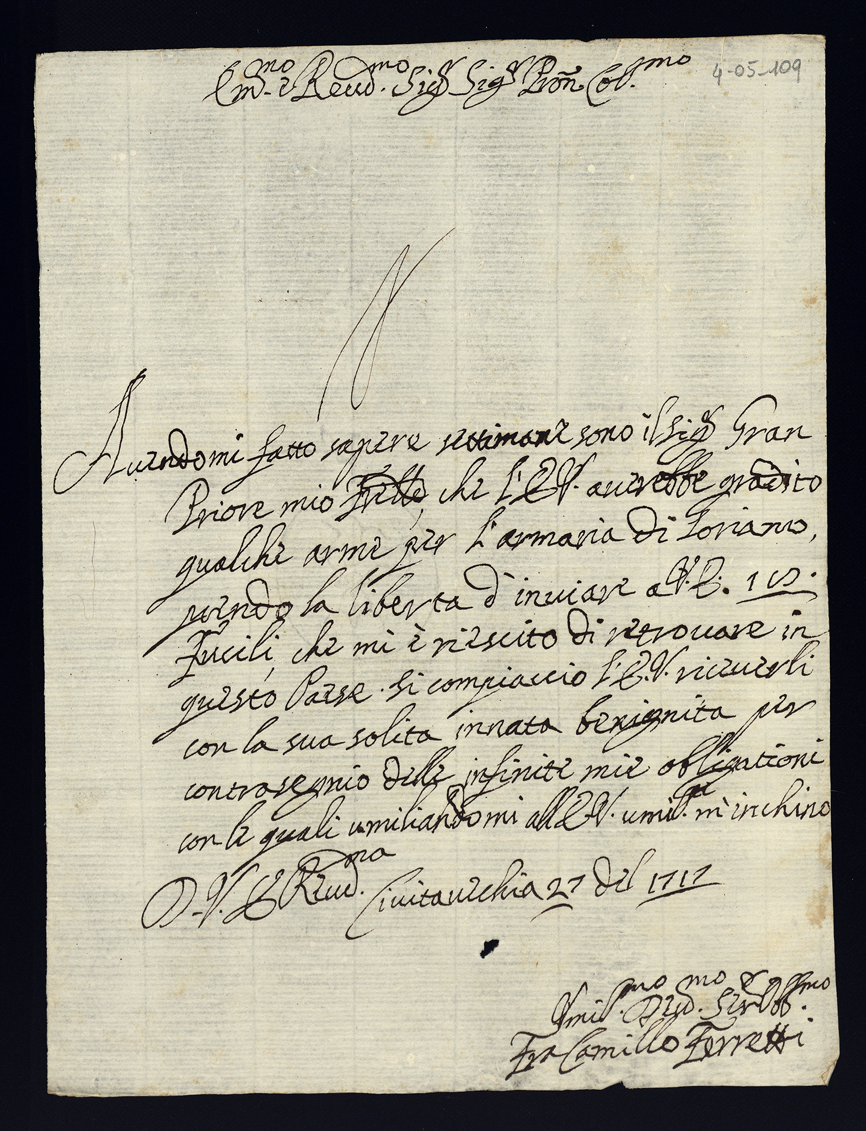 4-05-109
Em.mo e Reud.mo Sig.r Sig.r Pron Col.mo
Auendomi fatto sapere settimane sono il Sig.r Gran
Priore mio frello, che l'E.V. auerebbe gradito
qualche arme per l'armaria di Soriano,
prendo la liberta d'inuiare a V.E.
Fucili, che mi è riescito di retrouare in
questo Paese. Si compiaccio l'E.V. riceuerli
con la sua solita innata benignita per
contrasegnio delle infinite mie obligationi
con le quali umiliandomi all'E.V. umil.te m'inchino
D. V. E Reud.ma Ciuitauechia 27 del 1717
Vmil.mo Deud.mo Ser.r Obb.mo
Fra Camillo Ferretti